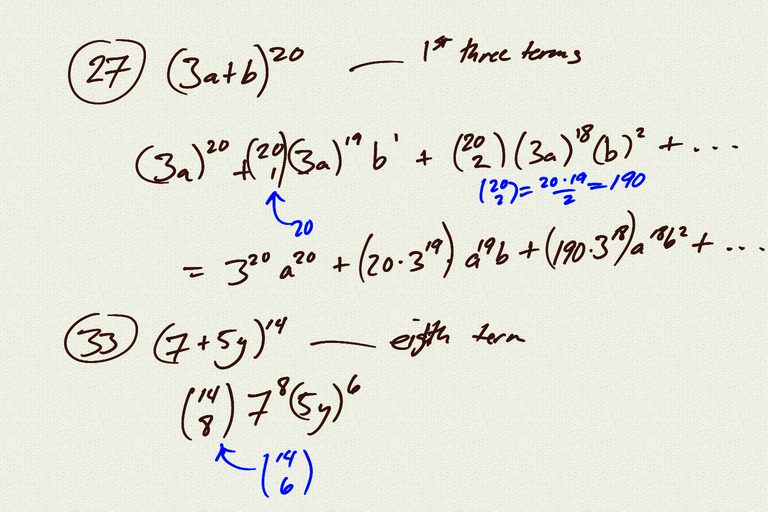 27 (3a+b)^20 — 1st three terms
(3a)^20 + (20 1)(3a)^19 b^1 + (20 2)(3a)^18 (b)^2 + ...
(20 2) = 20·19/2 = 190
20
= 3^20 a^20 + (20·3^19) a^19 b + (190·3^18) a^18 b^2 + ...
33 (7+5y)^14 — eigth term
(14 8) 7^8 (5y)^6
(14 6)